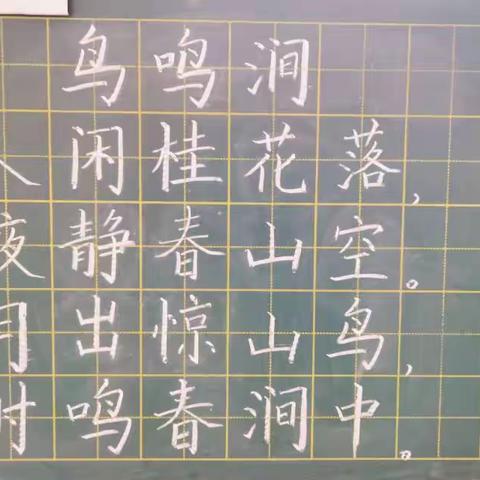 鸟鸣涧
闲桂花落，
夜静春山空。
月出惊山鸟，
时鸣春涧中。